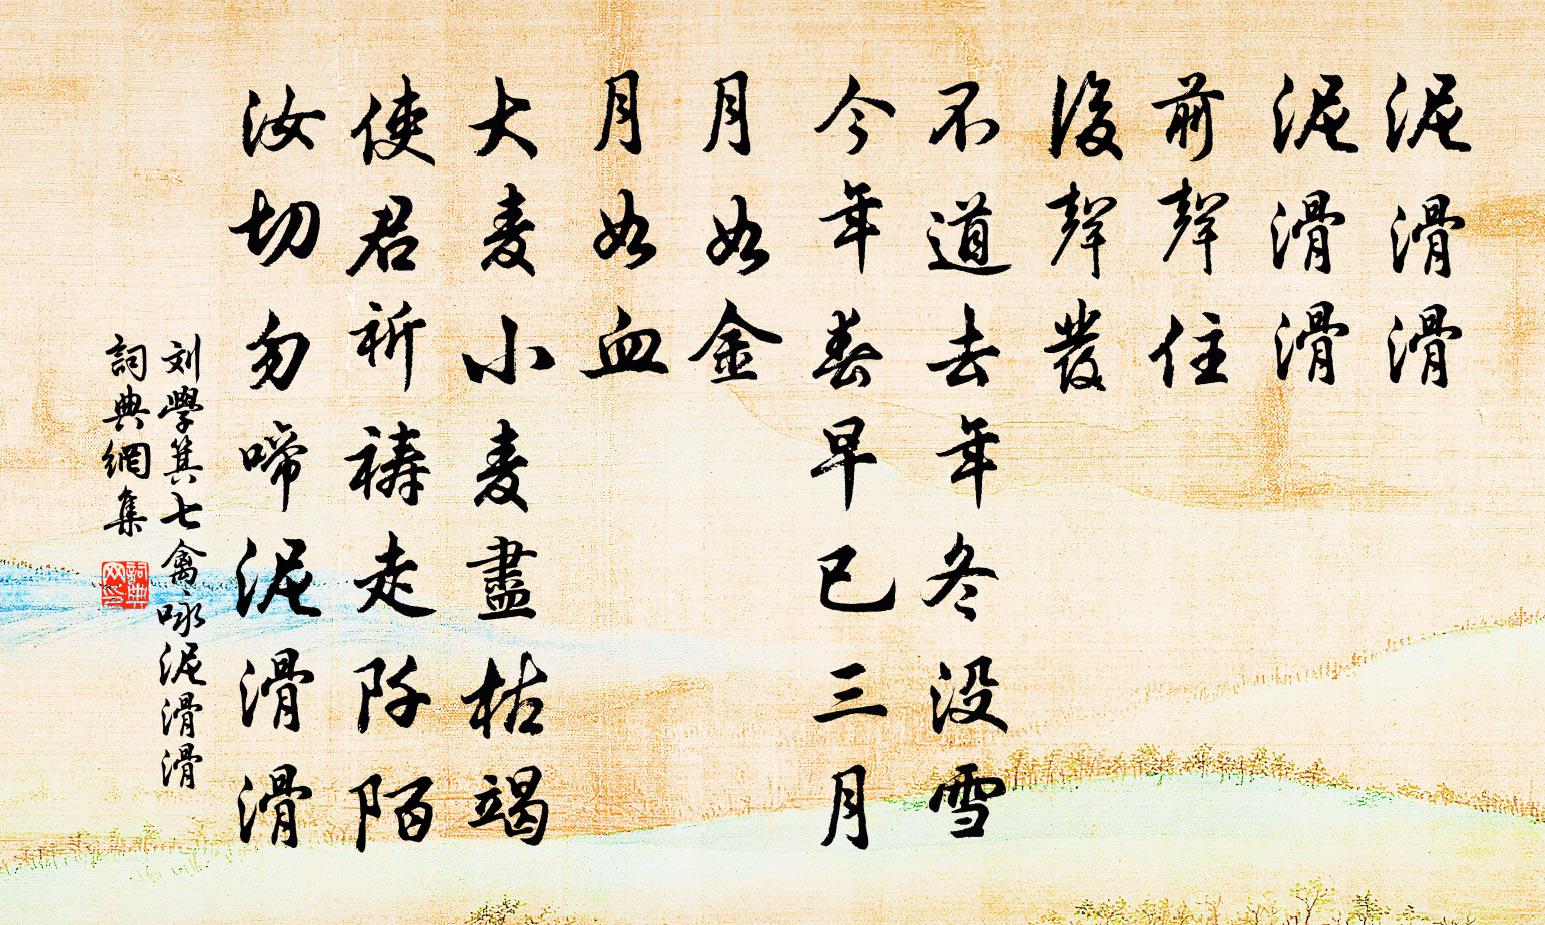 泥滑滑
泥滑滑
前聲住
後聲發
不道去年冬没雪
今年春早已三月
月如金
月如血
大麦小麦盡枯竭
使君祈祷走阡陌
汝切勿啼泥滑滑
刘學箕七禽咏泥滑滑
詞典網集